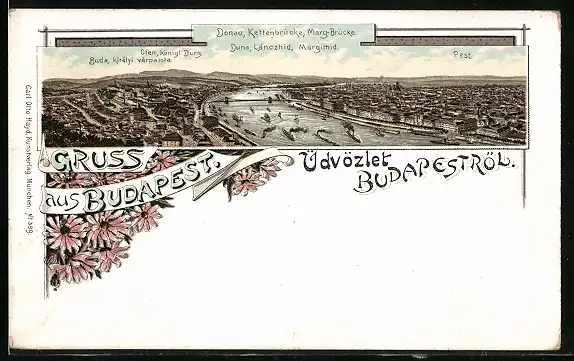 Donau, Kettenbrücke, Marg-Brücke.
Duna, Lánczhid, Margithid.
Ofen, königl. Burg.
Buda, királyi várpalota.
Pest.
GRUSS
aus BUDAPEST.
Üdvözlet
BUDAPESTRÖL.
Carl Otto Hayd, Kunstverlag, München, №